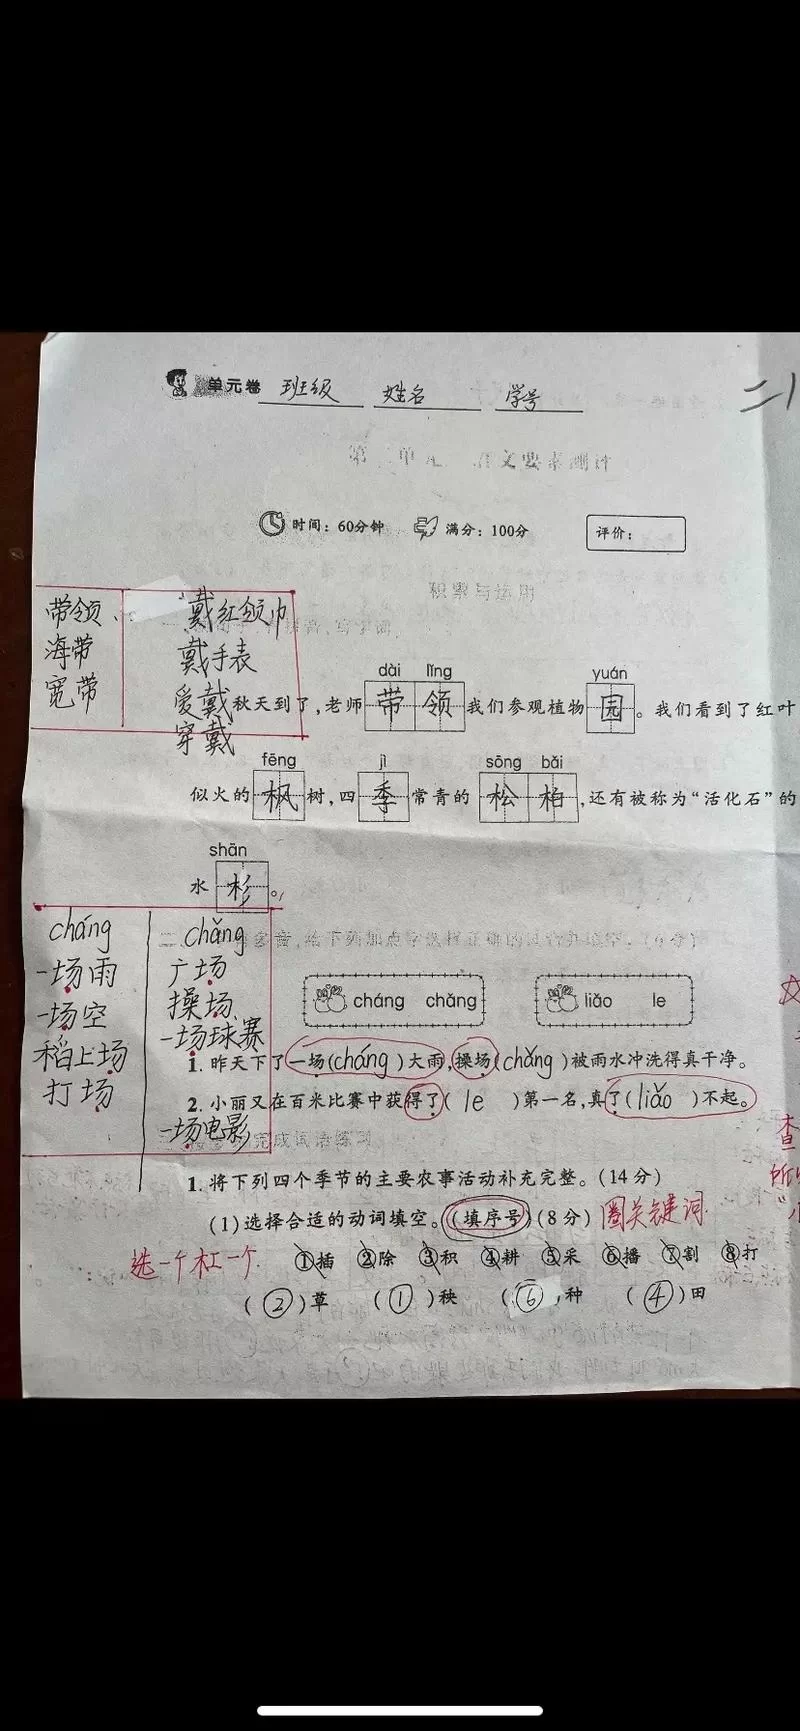 单元卷 班级 姓名 学号
二1
第 单元 语文要素测评
时间：60分钟 满分：100分 评价：
积累与运用
带领 戴红领巾
海带 戴手表
宽带 爱戴
穿戴
dài lǐng yuán
秋天到了，老师带领我们参观植物园。我们看到了红叶
fēng jì sōng bǎi
似火的枫树，四季常青的松柏，还有被称为“活化石”的
shān
水杉。
cháng chǎng
一场雨 广场
一场空 操场
稻上场 一场球赛
打场
一场电影
cháng chǎng liǎo le
1. 昨天下了一场(cháng)大雨，操场(chǎng)被雨水冲洗得真干净。
2. 小丽又在百米比赛中获得了(le)第一名，真了(liǎo)不起。
完成词语练习
1. 将下列四个季节的主要农事活动补充完整。(14分)
(1)选择合适的动词填空。(填序号)(8分) 圈关键词
选一个杠一个 ①插 ②除 ③积 ④耕 ⑤采 ⑥播 ⑦割 ⑧打
(②)草 (①)秧 (⑥)种 (④)田
查